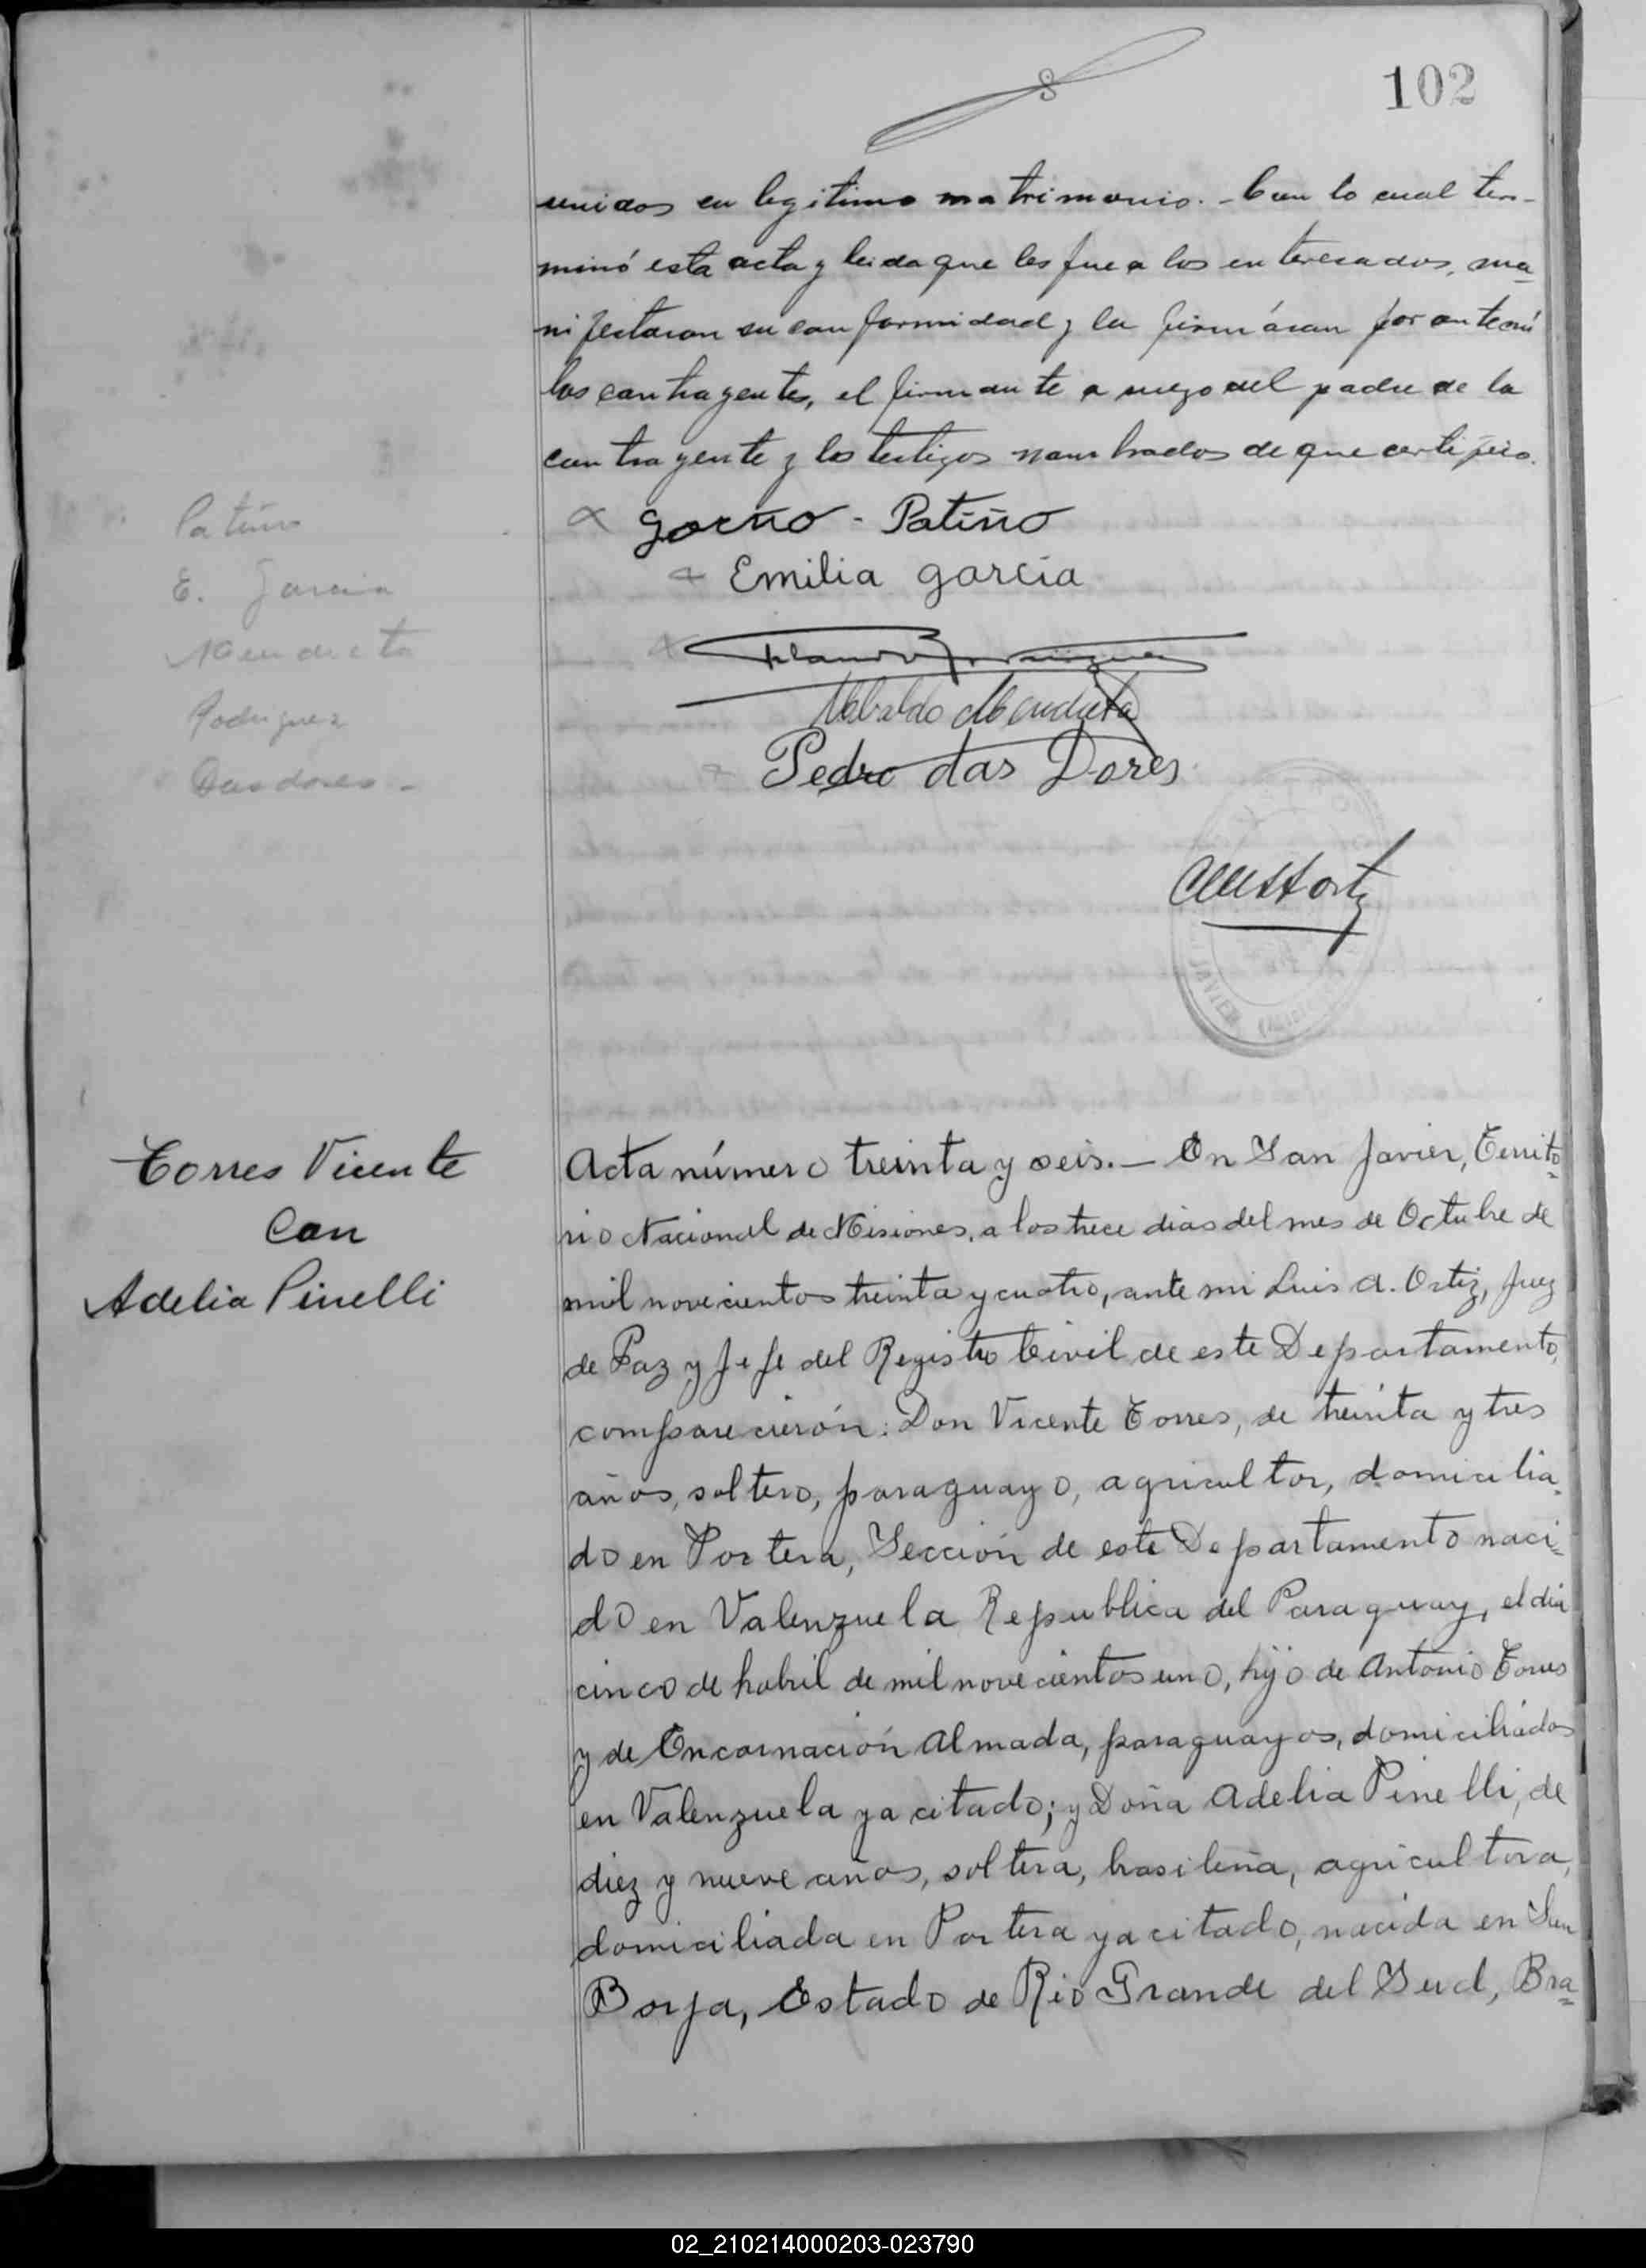 102
unidos en legitimo matrimonio.- Con lo cual ter-
minó esta acta y leida que les fue a los enteresados, ma-
nifestaron su conformidad y la firmáran por ante mi
los contrayentes, el firmante a ruego del padre de la
contrayente y los testigos nombrados de que certifico.
Patiño
E. Garcia
Mendieta
Rodriguez
Dasdores -
Patiño
Emilia garcia
Mendieta
Pedro das Dores
JAVIER
Torres Vicente
Con
Adelia Pinelli
Acta número treinta y seis.- En San Javier, Territo=
rio Nacional de Misiones, a los trece dias del mes de Octubre de
mil novecientos treinta y cuatro, ante mi Luis A. Ortiz, Juez
de Paz y Jefe del Registro Civil de este Departamento,
comparecierón: Don Vicente Torres, de treinta y tres
años, soltero, paraguayo, agricultor, domicilia=
do en Portera, Sección de este Departamento naci=
do en Valenzuela Republica del Paraguay, el dia
cinco de habril de mil novecientos uno, hijo de Antonio Torres
y de Encarnación Almada, paraguayos, domiciliados
en Valenzuela ya citado; y Doña Adelia Pinelli, de
diez y nueve años, soltera, brasileña, agricultora,
domiciliada en Portera ya citado, nacida en San
Borja, Estado de Rio Grande del Sud, Bra=
02_210214000203-023790